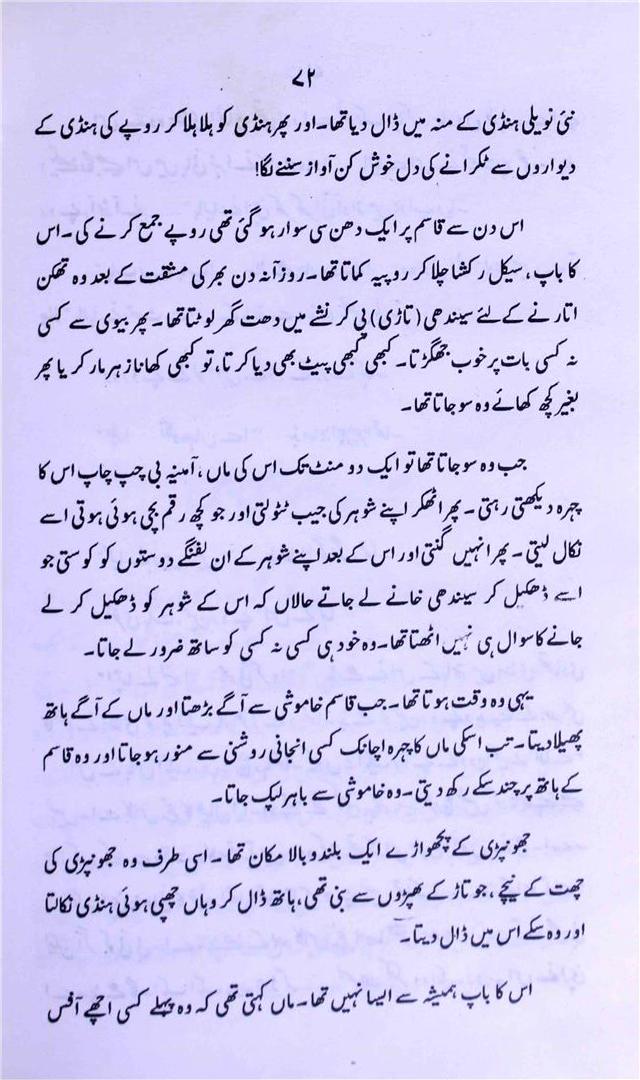 ۷۲
نئی نویلی ہنڈی کے منہ میں ڈال دیا تھا۔ اور پھر ہنڈی کو ہلا ہلا کر روپے کی ہنڈی کے
دیواروں سے ٹکرانے کی دل خوش کن آواز سننے لگا!
اس دن سے قاسم پر ایک دھن سی سوار ہو گئی تھی روپے جمع کرنے کی۔ اس
کا باپ، سیکل رکشا چلا کر روپیہ کماتا تھا۔ روزآنہ دن بھر کی مشقت کے بعد وہ تھکن
اتارنے کے لئے سیندھی (تاڑی) پی کر نشے میں دھت گھر لوٹتا تھا۔ پھر بیوی سے کسی
نہ کسی بات پر خوب جھگڑتا۔ کبھی کبھی پیٹ بھی دیا کرتا، تو کبھی کھانا زہر مار کر یا پھر
بغیر کچھ کھائے وہ سو جاتا تھا۔
جب وہ سو جاتا تھا تو ایک دو منٹ تک اس کی ماں، آمینہ بی چپ چاپ اس کا
چہرہ دیکھتی رہتی۔ پھر اٹھکر اپنے شوہر کی جیب ٹٹولتی اور جو کچھ رقم بچی ہوئی ہوتی اسے
نکال لیتی۔ پھر انہیں گنتی اور اس کے بعد اپنے شوہر کے ان لفنگے دوستوں کو کوستی جو
اسے ڈھکیل کر سیندھی خانے لے جاتے حالاں کہ اس کے شوہر کو ڈھکیل کر لے
جانے کا سوال ہی نہیں اٹھتا تھا۔ وہ خود ہی کسی نہ کسی کو ساتھ ضرور لے جاتا۔
یہی وہ وقت ہوتا تھا۔ جب قاسم خاموشی سے آگے بڑھتا اور ماں کے آگے ہاتھ
پھیلا دیتا۔ تب اسکی ماں کا چہرہ اچانک کسی انجانی روشنی سے منور ہو جاتا اور وہ قاسم
کے ہاتھ پر چند سکے رکھ دیتی۔ وہ خاموشی سے باہر لپک جاتا۔
جھونپڑی کے پچھواڑے ایک بلند و بالا مکان تھا۔ اسی طرف وہ جھونپڑی کی
چھت کے نیچے، جو تاڑ کے پھڑوں سے بنی تھی، ہاتھ ڈال کر وہاں چھپی ہوئی ہنڈی نکالتا
اور وہ سکے اس میں ڈال دیتا۔
اس کا باپ ہمیشہ سے ایسا نہیں تھا۔ ماں کہتی تھی کہ وہ پہلے کسی اچھے آفس